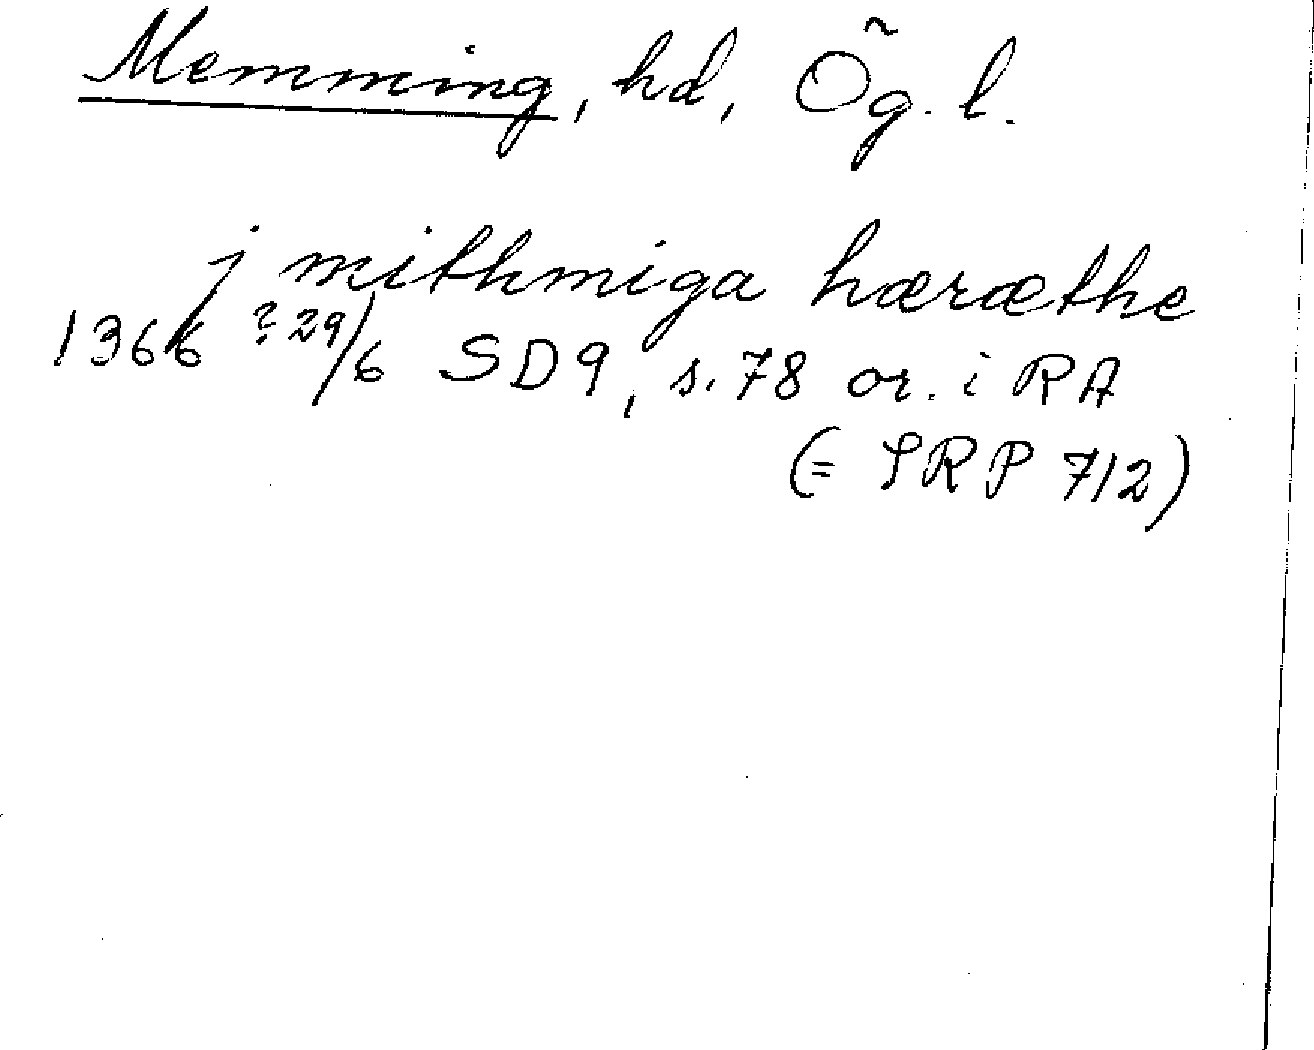 Memming, hd, Ög. l.
j mithmiga hæræthe
1366 ? 29/6 SD9, s. 78 or. i RA
(= SRP 712)